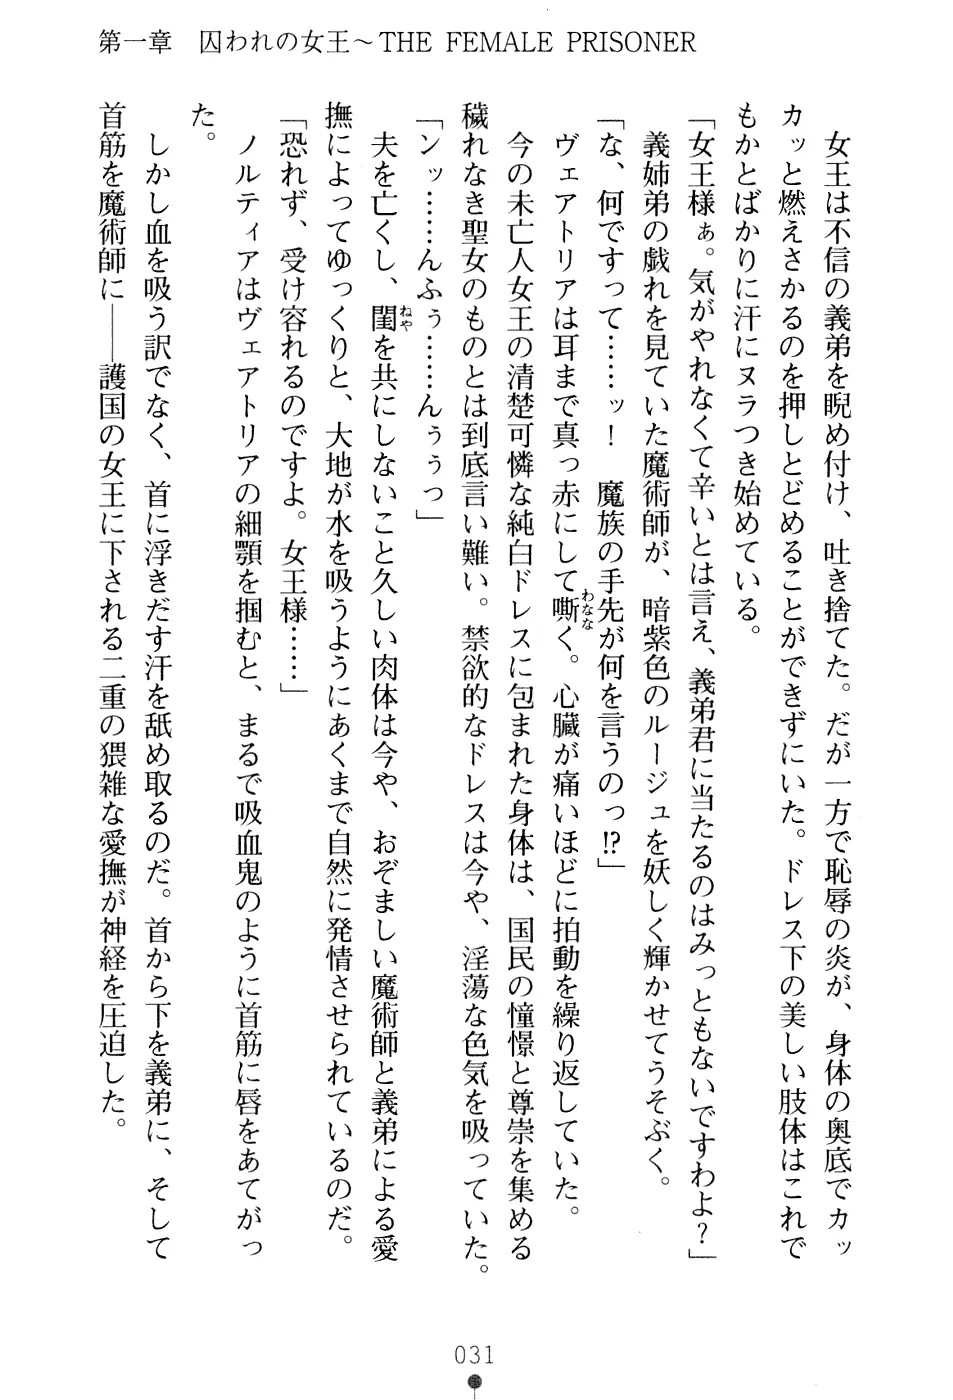 第一章　囚われの女王～THE FEMALE PRISONER
　女王は不信の義弟を睨め付け、吐き捨てた。だが一方で恥辱の炎が、身体の奥底でカッ
カッと燃えさかるのを押しとどめることができずにいた。ドレス下の美しい肢体はこれで
もかとばかりに汗にヌラつき始めている。
「女王様ぁ。気がやれなくて辛いとは言え、義弟君に当たるのはみっともないですわよ？」
　義姉弟の戯れを見ていた魔術師が、暗紫色のルージュを妖しく輝かせてうそぶく。
「な、何ですって……ッ！　魔族の手先が何を言うのっ!?」
　ヴェアトリアは耳まで真っ赤にして嘶く。心臓が痛いほどに拍動を繰り返していた。
わなな
　今の未亡人女王の清楚可憐な純白ドレスに包まれた身体は、国民の憧憬と尊崇を集める
穢れなき聖女のものとは到底言い難い。禁欲的なドレスは今や、淫蕩な色気を吸っていた。
「ンッ……んふぅ……んぅぅっ」
　夫を亡くし、閨を共にしないこと久しい肉体は今や、おぞましい魔術師と義弟による愛
ねや
撫によってゆっくりと、大地が水を吸うようにあくまで自然に発情させられているのだ。
「恐れず、受け容れるのですよ。女王様……」
　ノルティアはヴェアトリアの細顎を掴むと、まるで吸血鬼のように首筋に唇をあてがっ
た。
　しかし血を吸う訳でなく、首に浮きだす汗を舐め取るのだ。首から下を義弟に、そして
首筋を魔術師に――護国の女王に下される二重の猥雑な愛撫が神経を圧迫した。
031